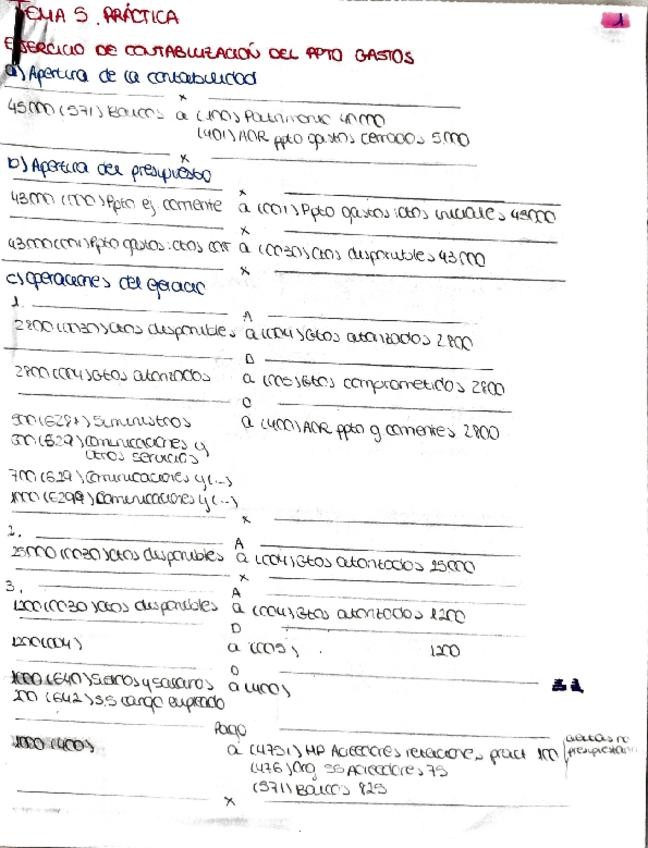 TEMA 5. PRÁCTICA
1
EJERCICIO DE CONTABILIZACIÓN DEL PPTO GASTOS
a) Apertura de la contabilidad
x
45000 (571) Bancos a (100) Patrimonio 40000
(401) AOR ppto gastos cerrados 5000
x
b) Apertura del presupuesto
x
43000 (000) Ppto ej corriente a (001) Ppto gastos: ctos iniciales 43000
x
43000 (001) Ppto gastos: ctos a (0030) ctos disponibles 43000
x
c) Operaciones del ejercicio
1.
A
2800 (0030) ctos disponibles a (004) Gtos autorizados 2800
D
2800 (004) Gtos autorizados a (005) Gtos comprometidos 2800
O
(628) Suministros a (400) AOR ppto g corrientes 2800
(629) Comunicaciones y
otros servicios
700 (629) Comunicaciones y (...)
1000 (6299) Comunicaciones y (...)
x
2.
A
25000 (0030) ctos disponibles a (004) Gtos autorizados 25000
x
3.
A
1200 (0030) ctos disponibles a (004) Gtos autorizados 1200
D
1200 (004) a (005) 1200
O
1000 (640) Sueldos y salarios a (400)
200 (642) SS cargo empleado
Pago
1000 (400) a (4751) HP Acreedores retenciones pract 100
(476) Org SS Acreedores 75
(571) Bancos 825
x